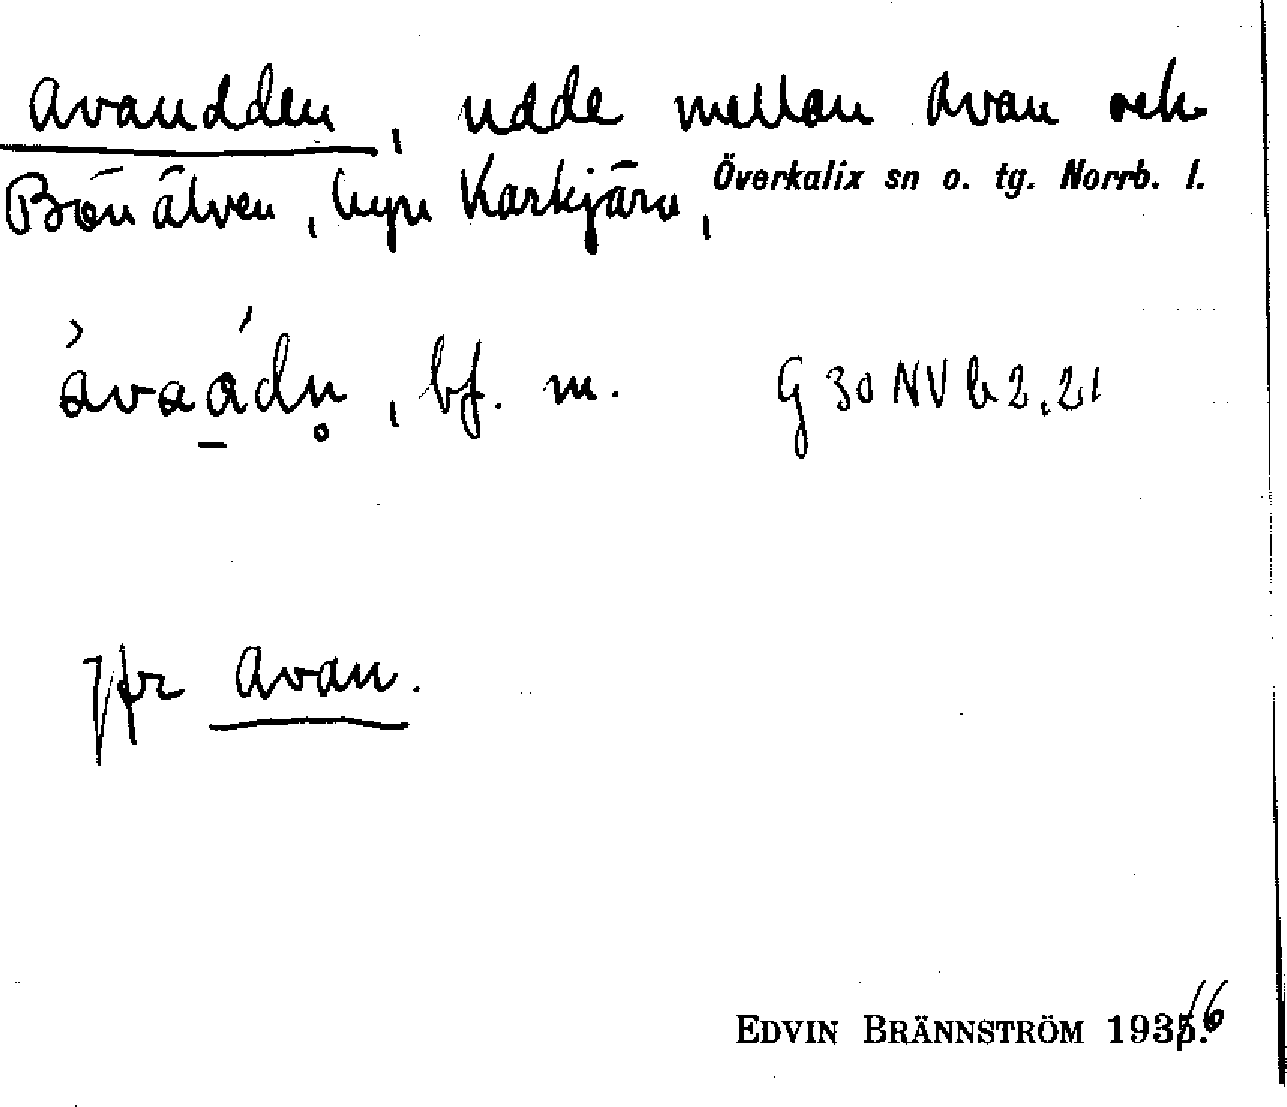 Avaudden, udde mellan Avan och
Bönälven, byn Karkjärv, Överkalix sn o. tg. Norrb. l.
bf. m. G 30 NV b 2, 21
Jfr Avan.
EDVIN BRÄNNSTRÖM 1936